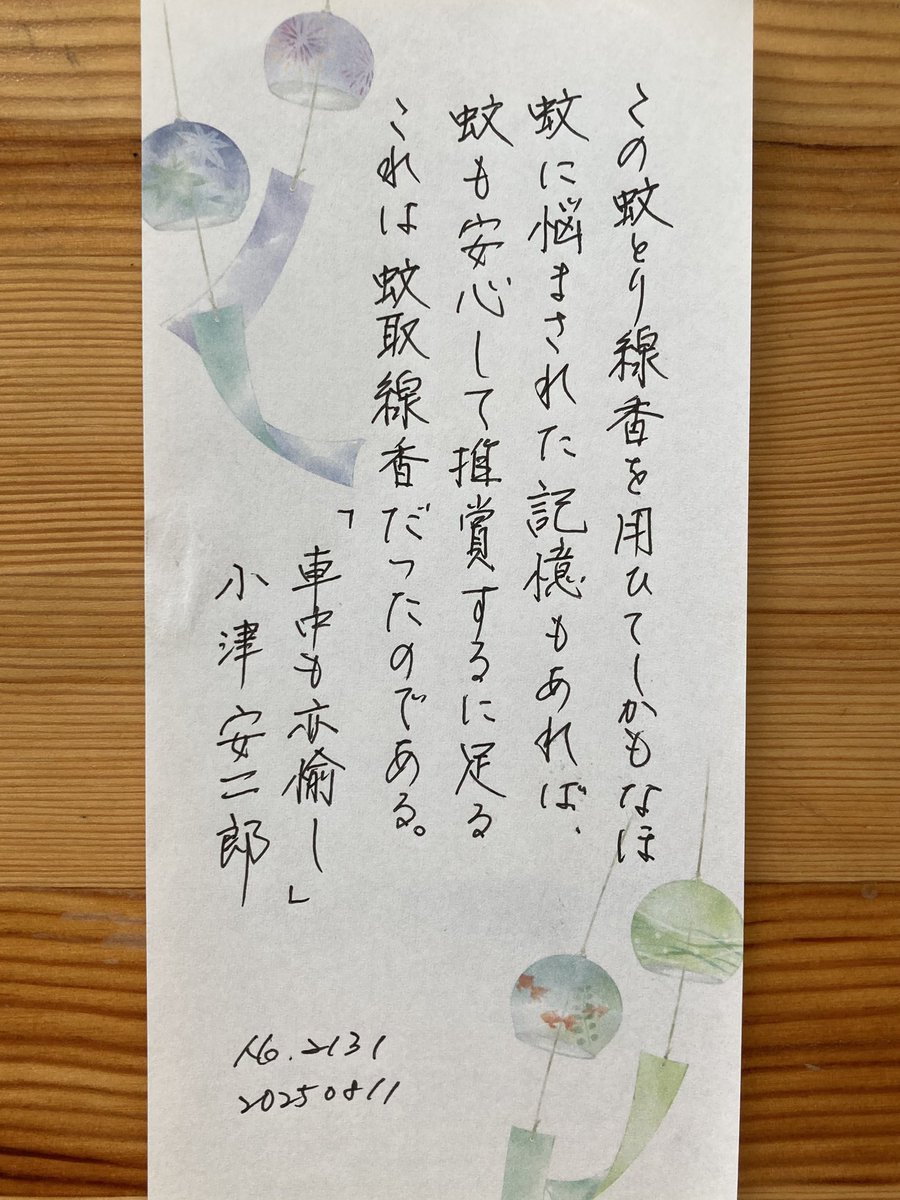 この蚊とり線香を用ひてしかもなほ
蚊に悩まされた記憶もあれば、
蚊も安心して推賞するに足る
これは蚊取線香だったのである。
「車中も亦愉し」
小津安二郎
No.2131
20250811